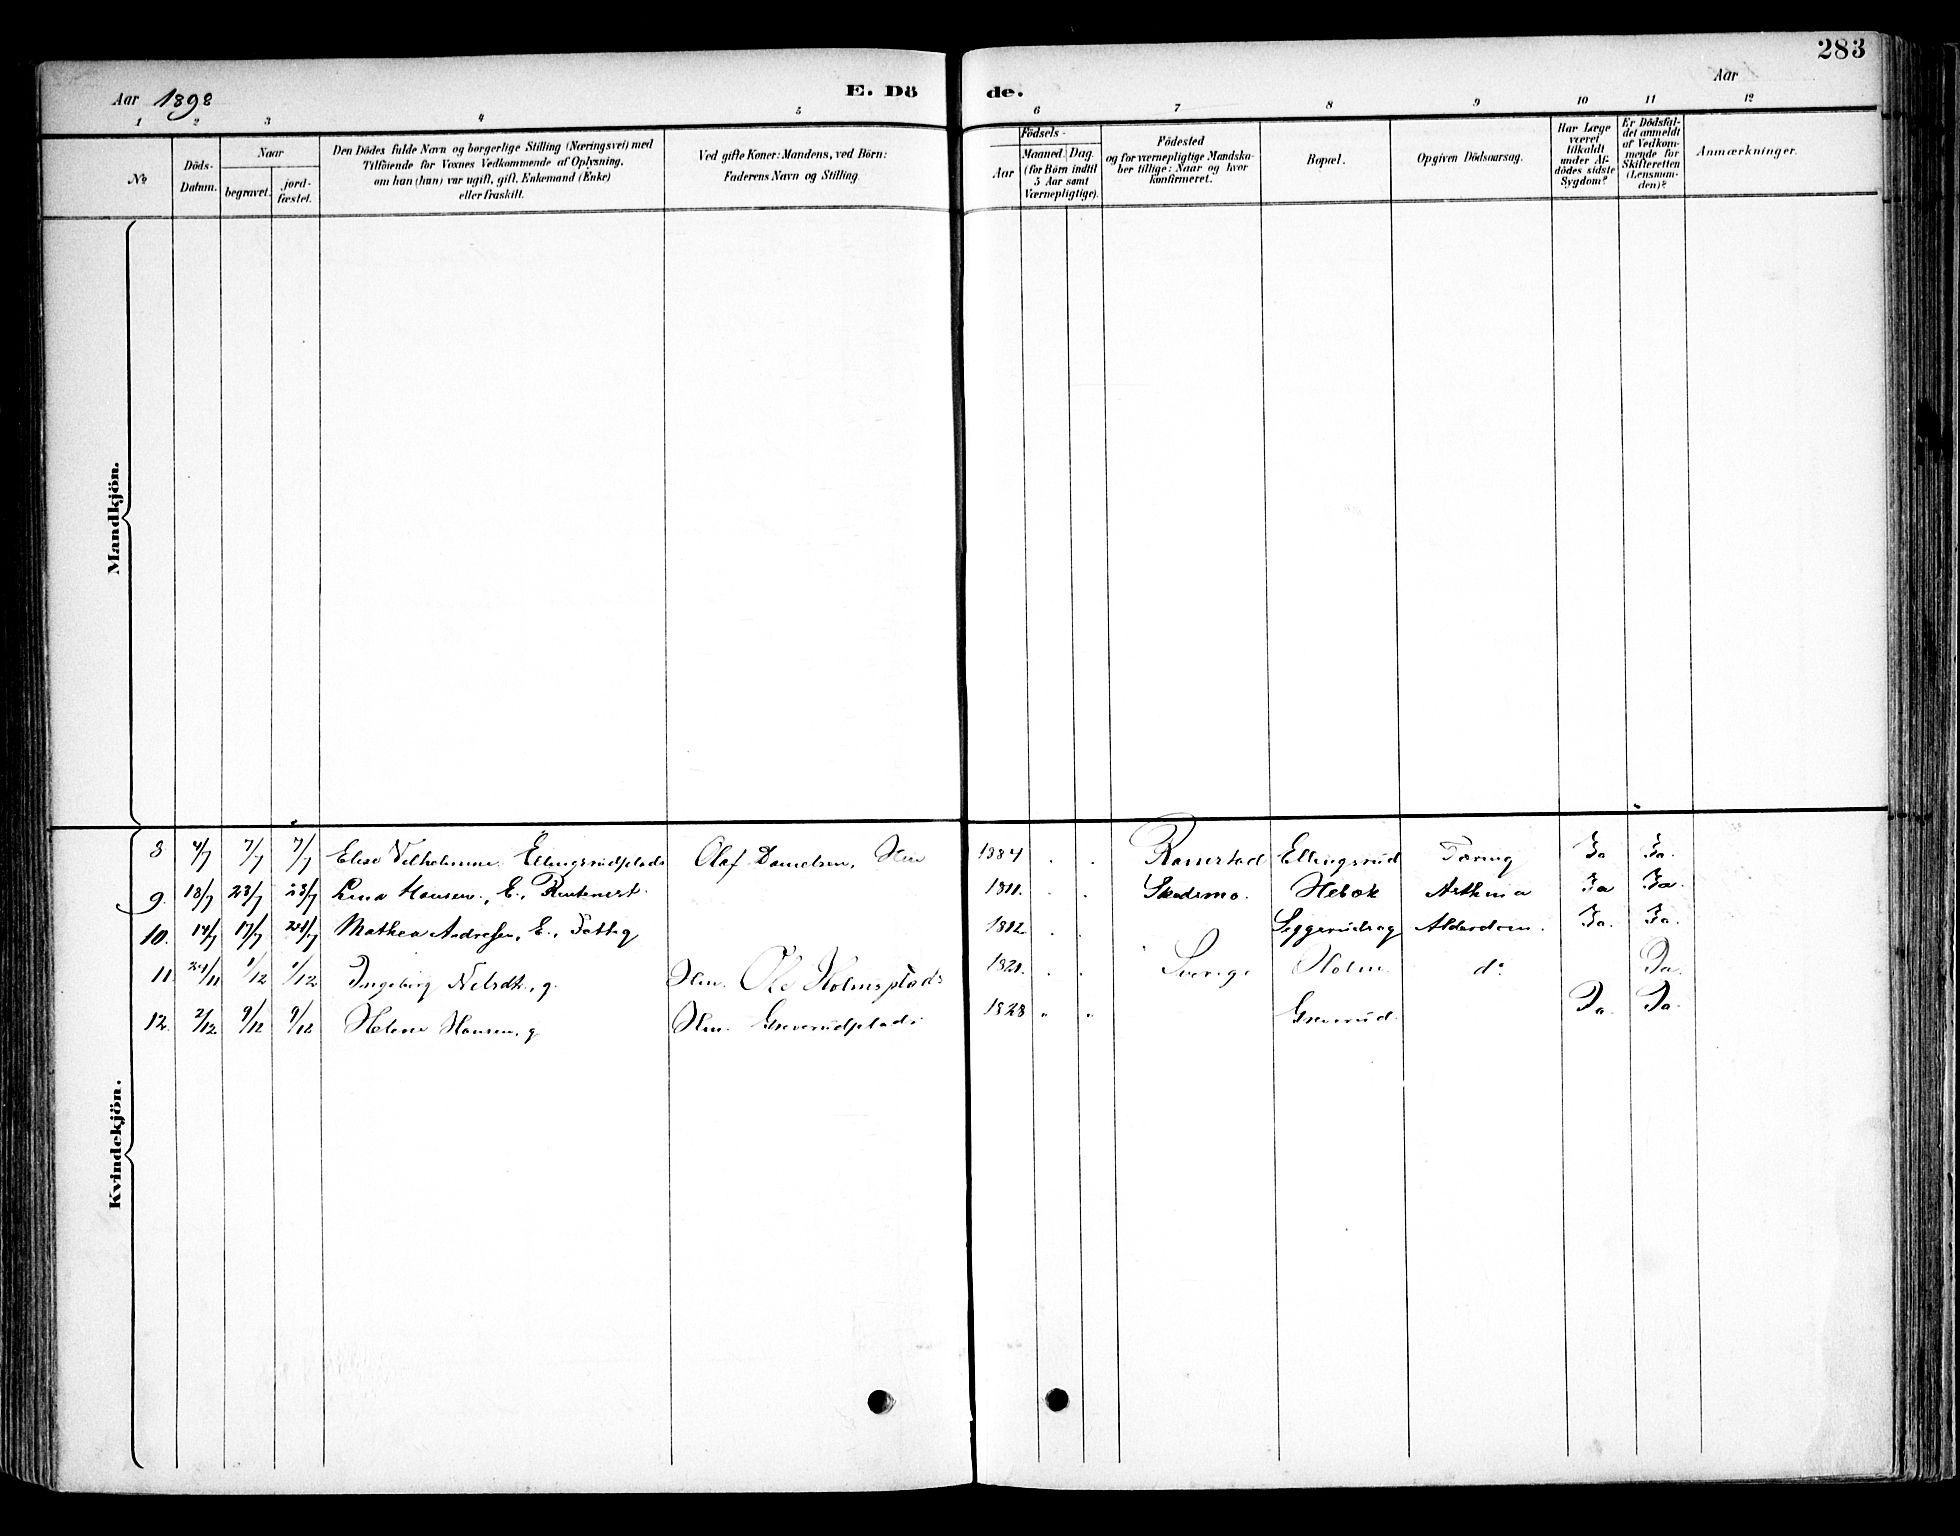 283
Aar 1898
E. Döde.
Aar
1 2 3 4 5 6 7 8 9 10 11 12
No
Döds-Datum.
Naar
begravet.
jord-fæstet.
Den Dödes fulde Navn og borgerlige Stilling (Næringsvei) med
Tilföiende for Voxnes Vedkommende af Oplysning,
om han (hun) var ugift, gift, Enkemand (Enke)
eller fraskilt.
Ved gifte Koner: Mandens, ved Börn:
Faderens Navn og Stilling.
Födsels-
Aar
Maaned. Dag.
(for Börn indtil
5 Aar samt
Værnepligtige).
Födested
og for værnepligtige Mandska-
ber tillige: Naar og hvor
konfirmeret.
Bopæl.
Opgiven Dödsaarsag.
Har Læge
været
tilkaldt
under Af-
dödes sidste
Sygdom?
Er Dödsfal-
det anmeldt
af Vedkom-
mende for
Skifteretten
(Lensman-
den)?
Anmærkninger.
Mandkjön.
Kvindekjön.
8 4/7 7/7 7/7 Elise Vilhelmine Ellingsrudplads Olaf Danielsen, Hm 1884 . . Ramstad Ellingsrud Tæring Ja Ja.
9. 18/7 23/7 23/7 Lina Hansen, E. 1811. . . Skedsmo. Hebæk Asthma Ja Ja.
10. 14/7 17/7 24/7 Mathea Andresen, E., Fattig 1812 . . Siggerudsag Alderdom. Ja. Ja.
11. 24/11 1/12 1/12 Ingeborg Nelsdtr., g. Hm. Ole Holmsplads 1821. . . Sverige Holm do Ja.
12. 2/12 9/12 9/12 Helene Hansen, g Hm. Greverudplads 1828 " " Greverud. Ja. Ja.